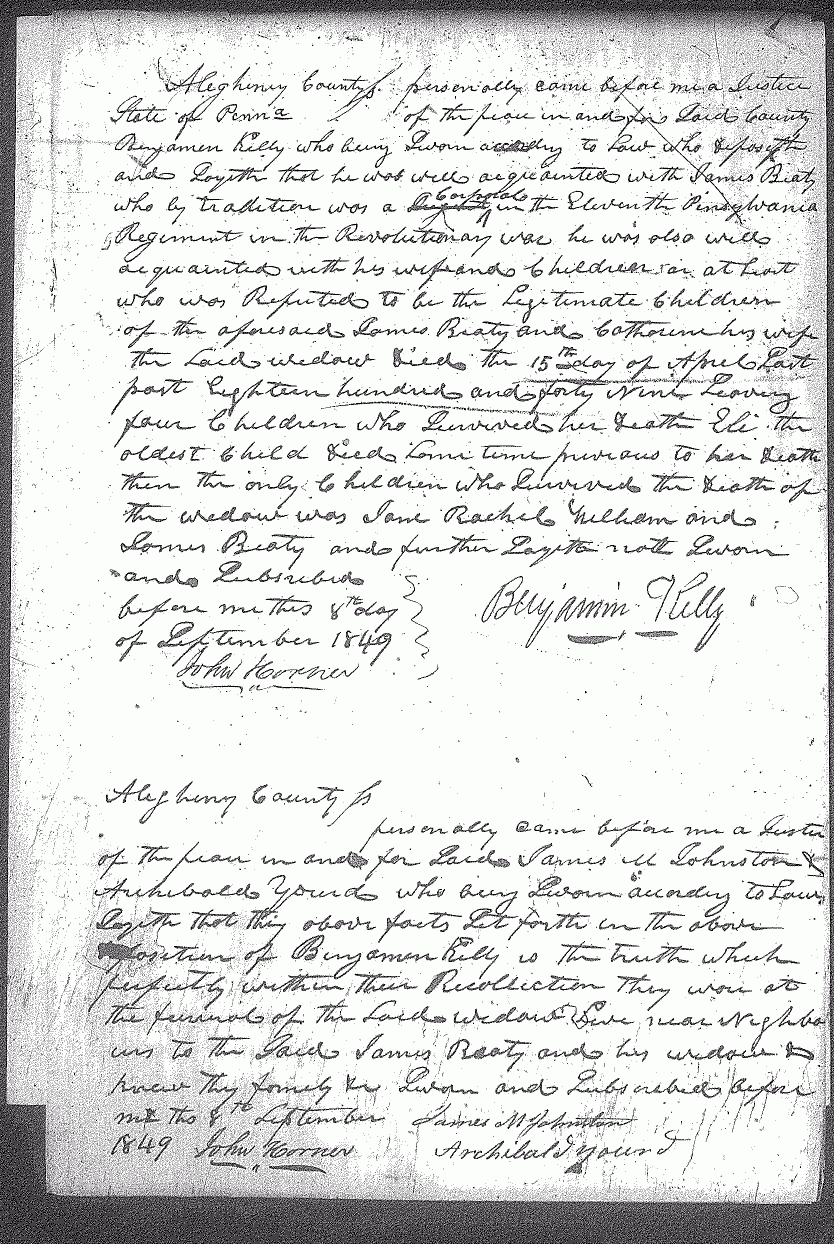 Alegheny County ss. personally came before me a Justice
State of Penna of the peace in and for Said County
Benjamen Kelly who being Sworn according to Law who deposeth
and Sayeth that he was well acquainted with James Beaty
who by tradition was a Corporal in the Eleventh Pinsylvania
Regiment in the Revolutionary war he was also well
acquainted with his wife and Children or at least
who was Reputed to be the Legitimate Children
of the aforesaid James Beaty and Catharine his wife
the Said widow Died the 15th day of April Last
past Eighteen hundred and forty Nine Leaving
four Children who Survived her Death Eli the
oldest Child Died some time previous to her Death
then the only Children who Survived the Death of
the widow was Jane Rachel William and
James Beaty and further Sayeth not Sworn
and Subscribed
before me this 8th day
of September 1849
Benjamin Kelly
John Horner
Alegheny County ss
personally came before me a Justice
of the peace in and for Said James M Johnston &
Archibald Yourd who being Sworn acording to Law
Sayeth that they above facts Set forth in the above
position of Benjamen Kelly is the truth which
perfectly within their Recollection they ware at
the funeral of the Said widow Live near Neighbo
urs to the Said James Beaty and his widow &
knew they family &c Sworn and Subscribed before
me ths 8th September James M Johnston
1849 John Horner Archibald Yourd